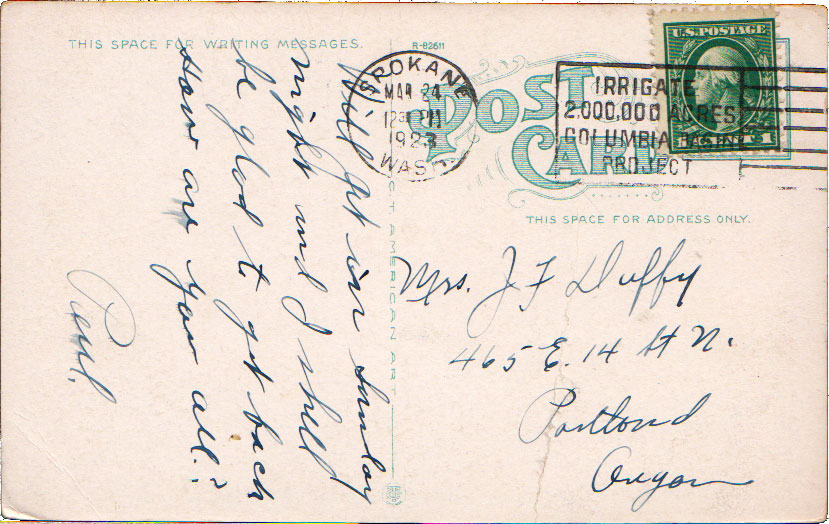 THIS SPACE FOR WRITING MESSAGES.
R-82611
POST
CARD
SPOKANE
MAR 24
1230 PM
1923
WASH.
IRRIGATE
2,000,000 ACRES
COLUMBIA BASIN
PROJECT
U.S. POSTAGE
THIS SPACE FOR ADDRESS ONLY.
Will get in Sunday
night and I shall
be glad to get back
How are you all?
Paul.
AMERICAN ART
Mrs. J F Duffy
465 E. 14 St N.
Portland
Oregon